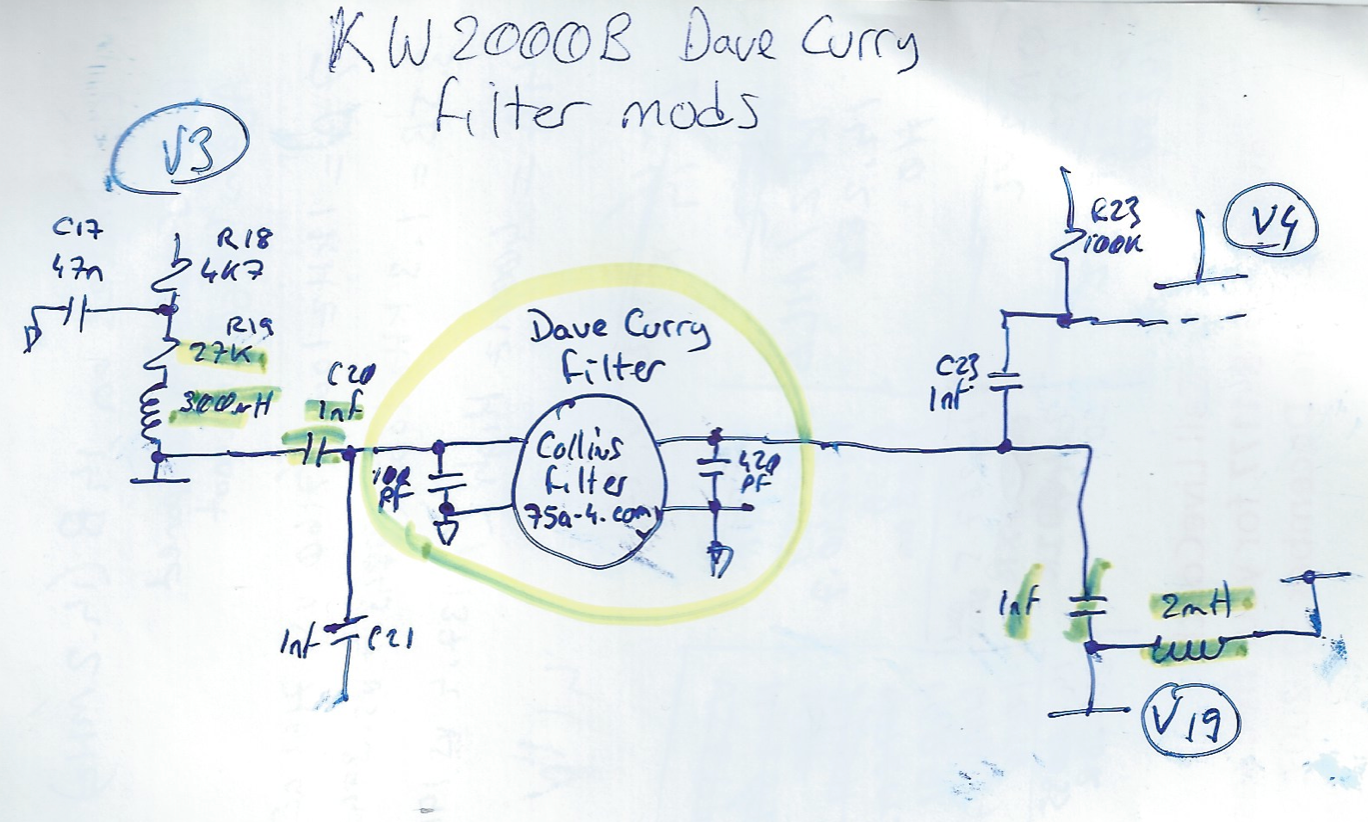 KW2000B Dave Curry
filter mods
V3
C17
47n
R18
4K7
R19
27K
300mH
C20
1nf
Dave Curry
filter
Collins
filter
75a-4.com
100
PF
420
PF
1nf C21
R23
100K
V4
C23
1nf
1nf
2mH
V19